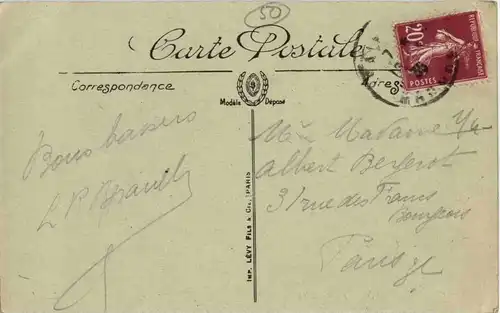 50
Carte Postale
REPUBLIQUE FRANÇAISE
20c
POSTES
Correspondance
Adresse
Modèle Déposé
Bons baisers
L P
IMP. LÉVY FILS & Cie, PARIS
Madame
Albert Bergerot
31 rue des Francs
Bourgeois
Paris